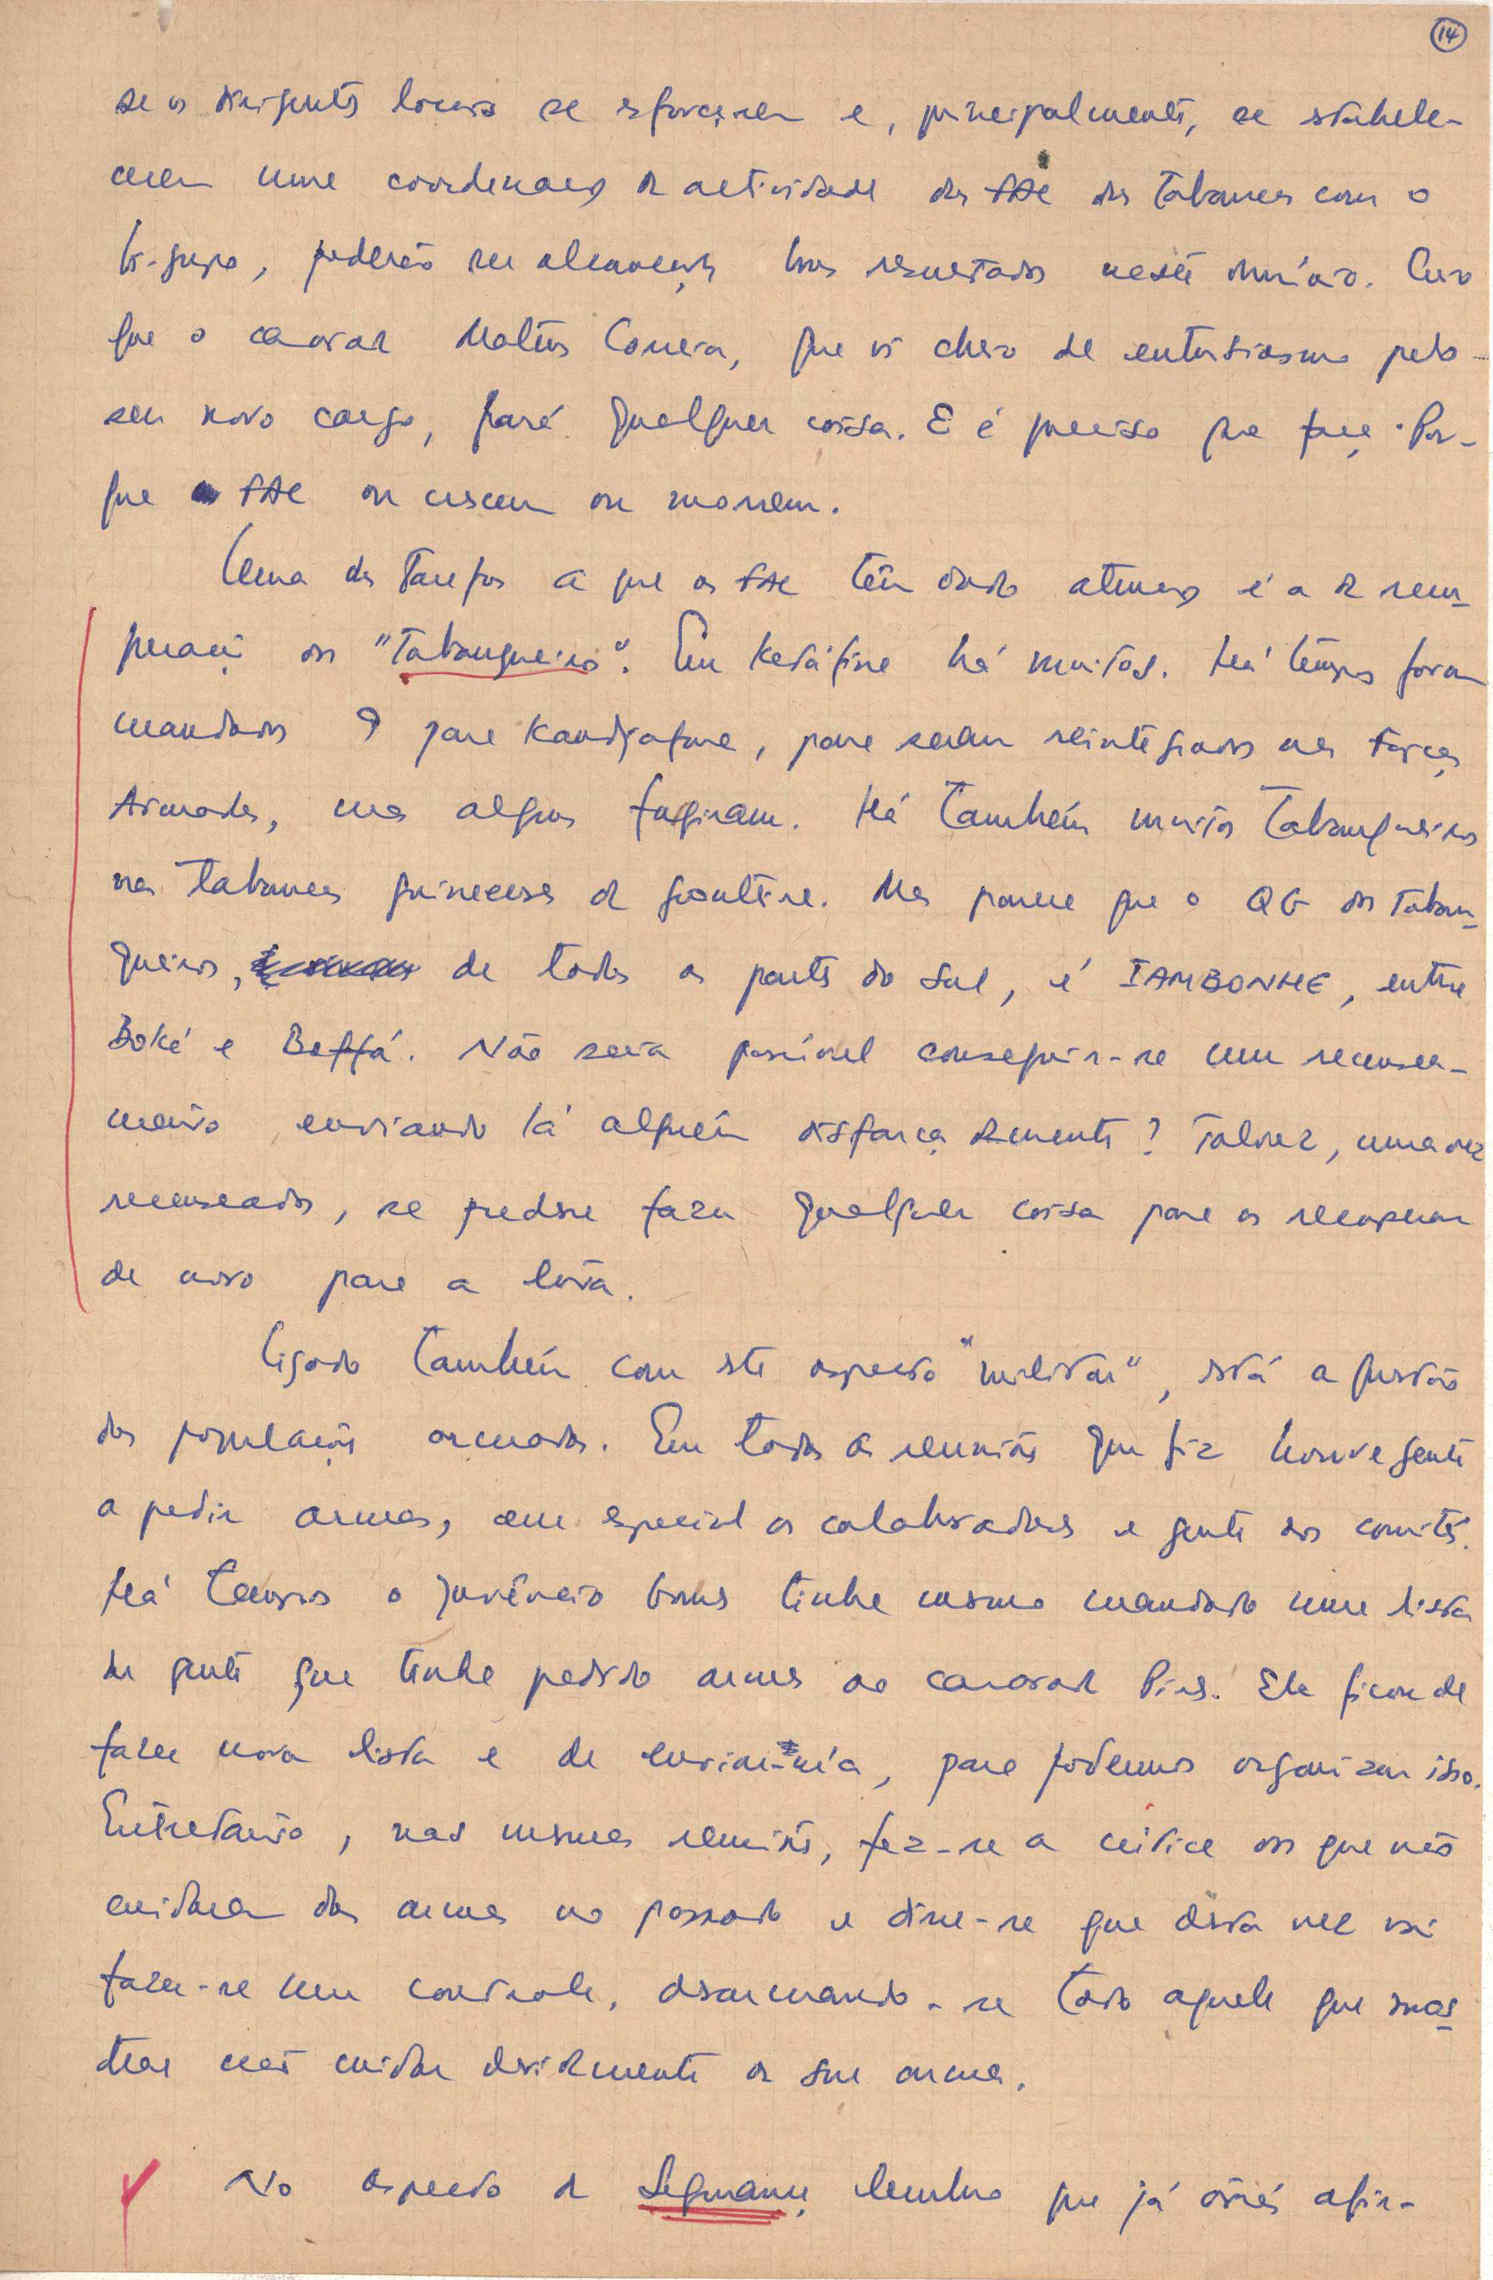 14
se os dirigentes locais se esforçarem e, principalmente, se estabele-
cerem uma coordenação de actividade das FAL das Tabancas com o
bi-grupo, poderão ser alcançados bons resultados neste domínio. Creio
que o camarada Mateus Correia, que vi cheio de entusiasmo pelo
seu novo cargo, fará qualquer coisa. E é preciso que faça. Por-
que as FAL ou crescem ou morrem.
Uma das Tarefas a que as FAL têm dado atenção é a de recu-
peração dos "Tabanqueiros". Em Kitáfine há muitos. Há tempos foram
mandados 9 para Kandjafara, para serem reintegrados nas Forças
Armadas, mas alguns fugiram. Há também muitos Tabanqueiros
nas Tabancas guineenses de fronteira. Mas parece que o QG dos Taban-
queiros, de todas as partes do Sul, é TAMBONHE, entre
Boké e Boffá. Não seria possível conseguir-se um recensea-
mento enviando lá alguém disfarçadamente? Talvez, uma vez
recenseados, se pudesse fazer qualquer coisa para os recuperar
de novo para a luta.
Ligado também com este aspecto "militar", está a questão
das populações armadas. Em todas as reuniões que fiz houve gente
a pedir armas, em especial os colaboradores e gente dos comités.
Há tempos o Juvêncio Gomes tinha mesmo mandado uma lista
de gente que tinha pedido armas ao camarada Pires. Ele ficou de
fazer nova lista e de enviar-ma, para podermos organizar isso.
Entretanto, nas mesmas reuniões, fez-se a crítica dos que não
cuidaram das armas no passado e disse-se que desta vez vai
fazer-se um controle, desarmando-se todo aquele que mos-
trar não cuidar devidamente da sua arma.
No aspecto de Segurança lembro que já atrás afir-